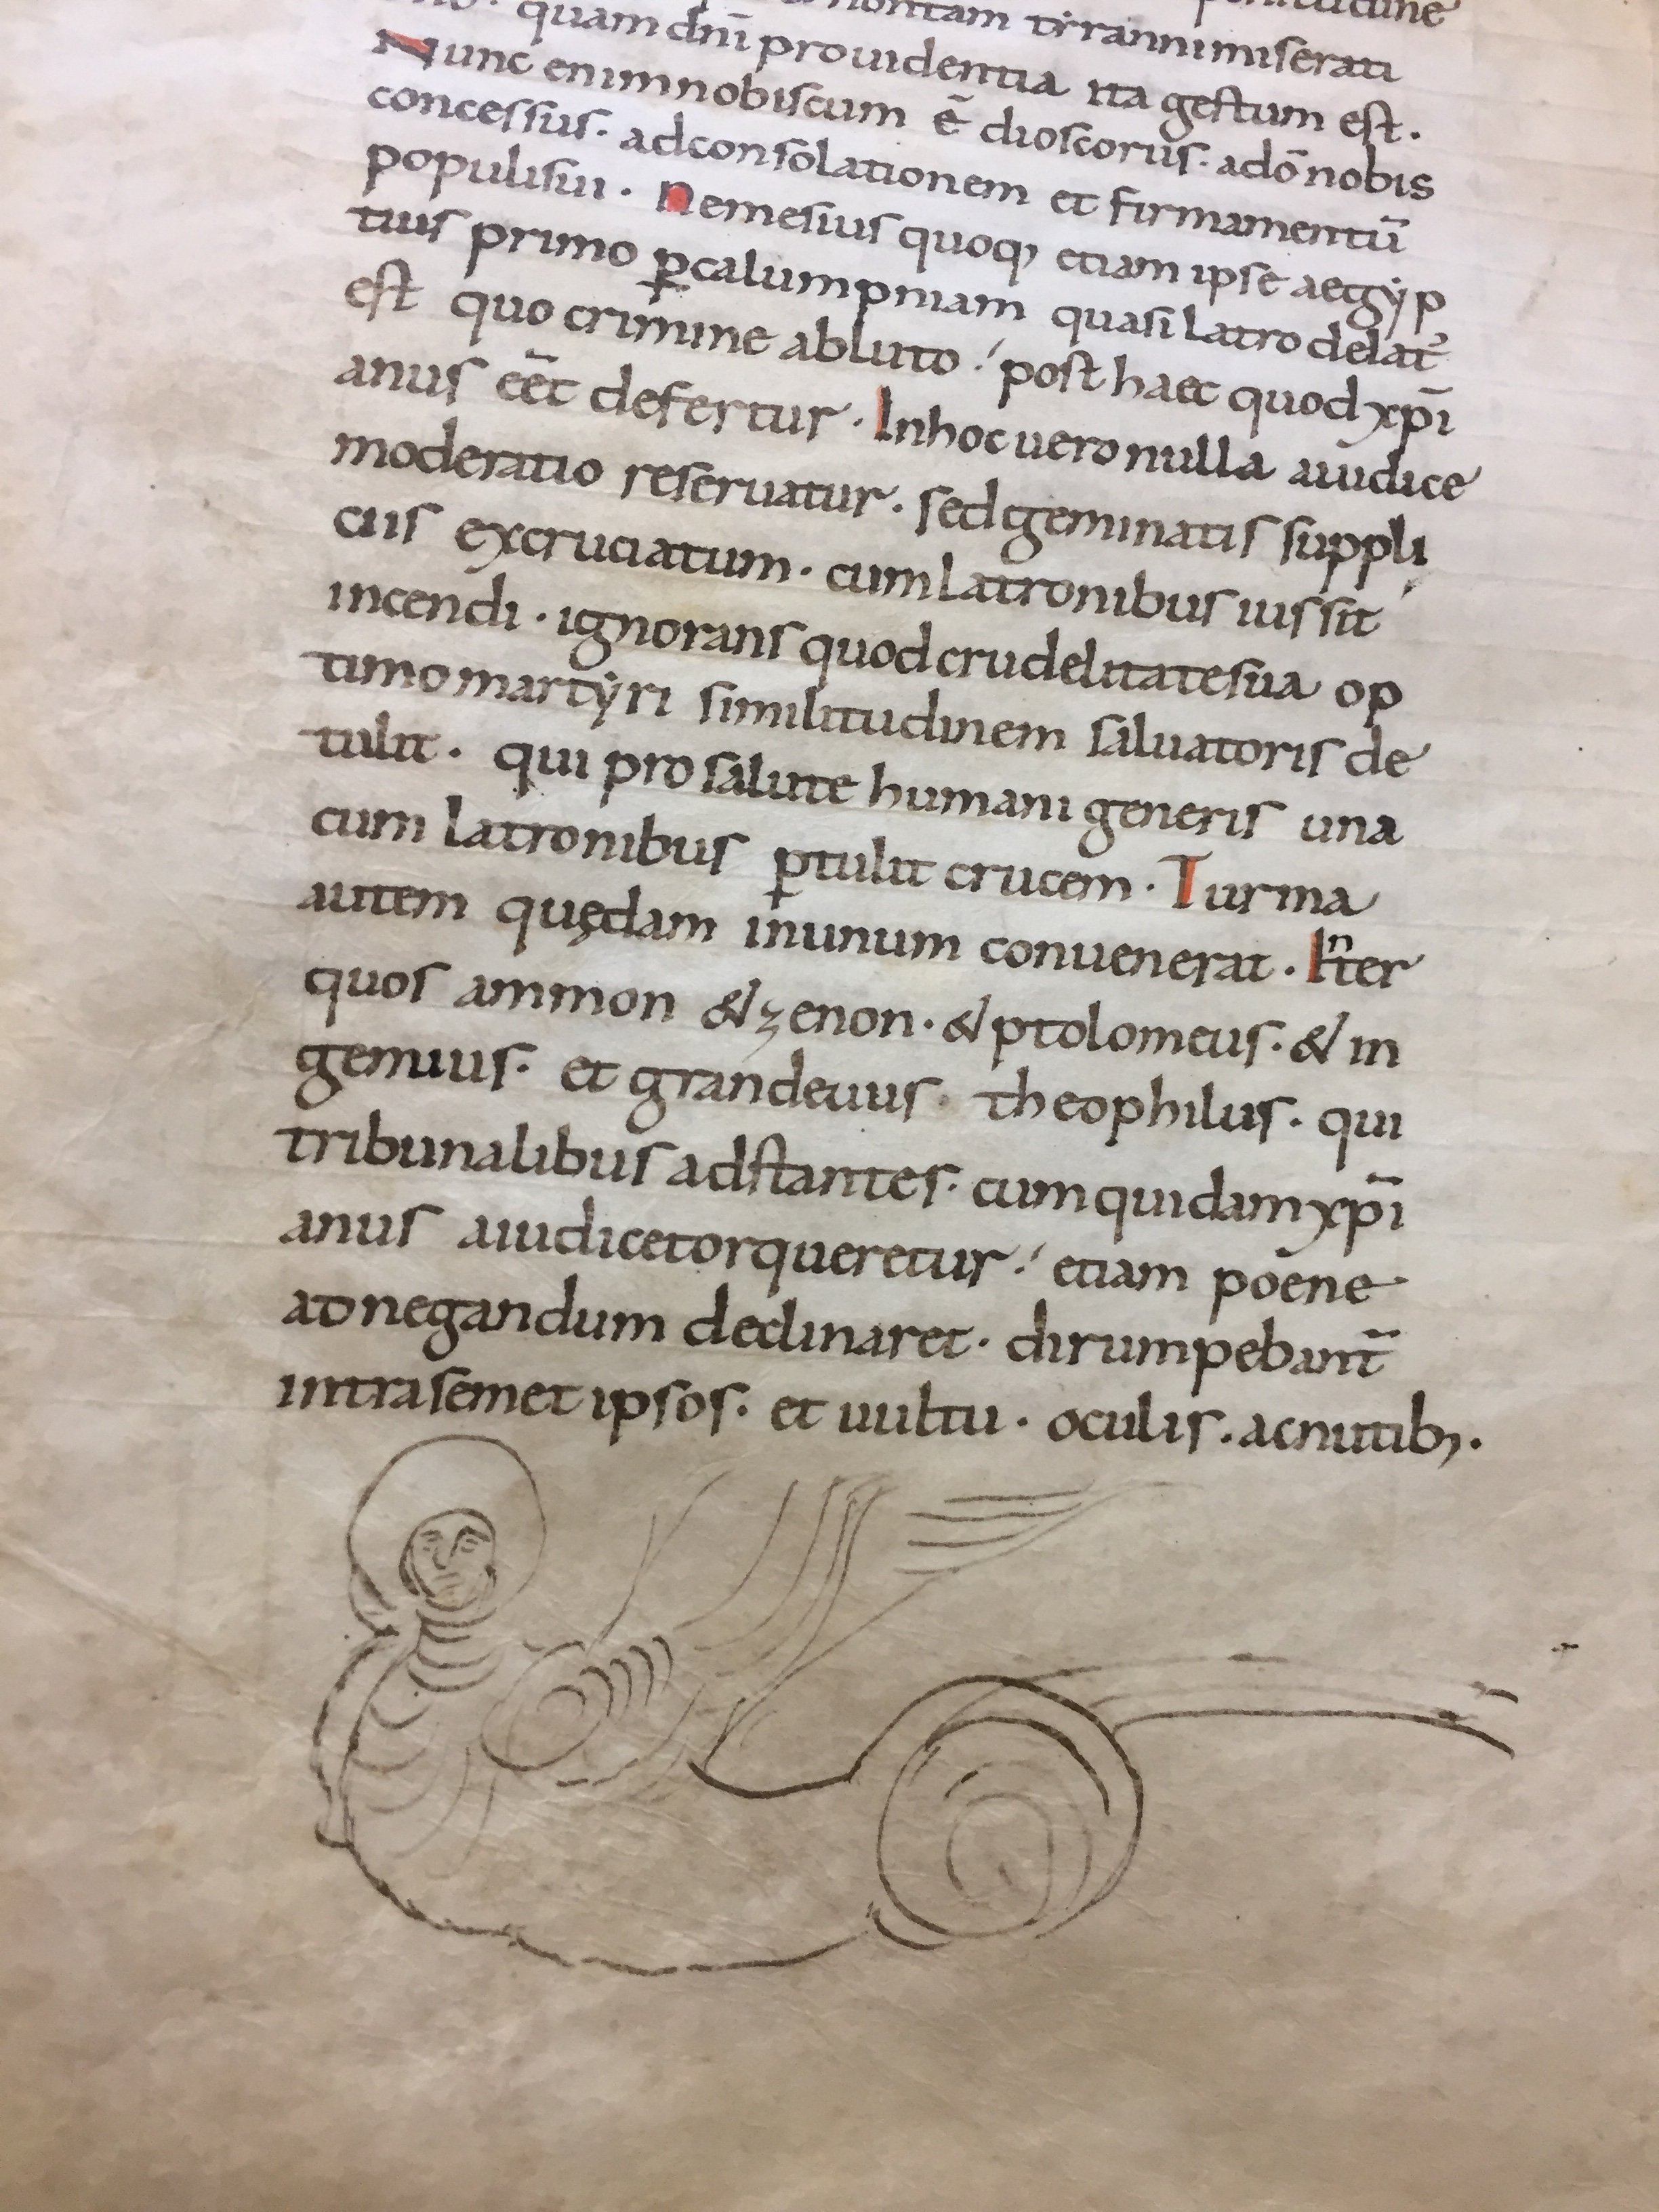 tyranni miserati
quam dnī prouidentia ita gestum est.
Nunc enim nobiscum ē dioscorus. adō nobis
concessus. ad consolationem et firmamentū
populi sui. Nemesius quoq; etiam ipse aegÿp
tius primo ꝑ calumpniam quasi latro delat᾽
est quo crimine abluto; post haec quod xp̄i
anus eēt defertur. In hoc uero nulla a iudice
moderatio reseruatur. sed geminatis suppli
ciis excruciatum. cum latronibus iussit
incendi. ignorans quod crudelitate sua op
timo martÿri similitudinem saluatoris de
tulit. qui pro salute humani generis una
cum latronibus ꝑtulit crucem. Turma
autem quędam in unum conuenerat. Inter
quos ammon & zenon. & ptolomeus. & in
genuus. et grandeuus. theophilus. qui
tribunalibus adstantes. cum quidam xp̄i
anus a iudice torqueretur; etiam poene
ad negandum declinaret. dirumpebant᷄
intra semet ipsos. et uultu. oculis. ac nutib;.